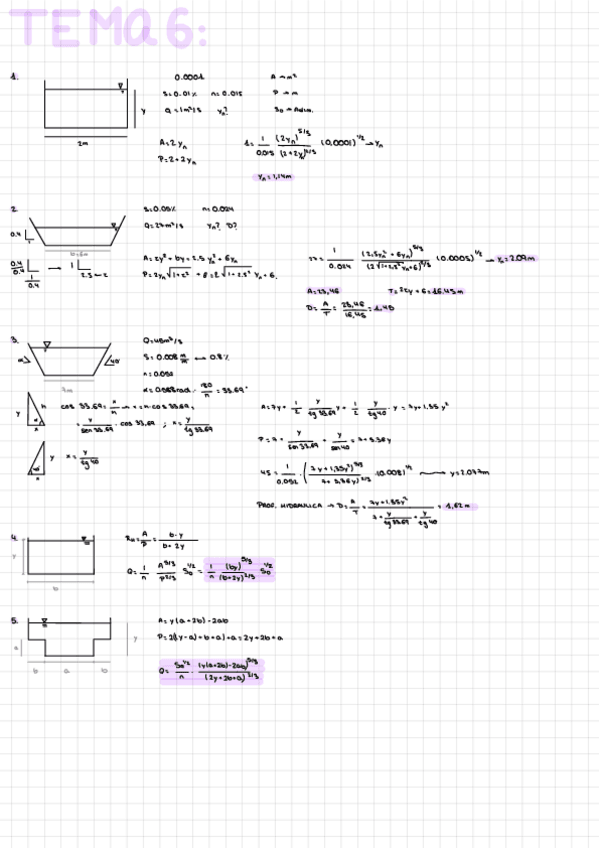 TEMA 6:
1.
0.0001
A → m²
S = 0.01%   n = 0.015
P → m
Q = 1 m³/s   yn?
y
2m
A = 2yn
P = 2 + 2yn
1 = 1/0.015 (2yn)^5/3 / (2+2yn)^2/3 (0.0001)^1/2 → yn
yn = 1,14m
2.
S = 0.05%   n = 0.024
Q = 27 m³/s   yn? D?
0.4
1
b = 6m
A = zy² + by = 2.5 yn² + 6yn
P = 2yn √1+z² + 6 = 2√1+2.5² yn + 6.
0.4/0.4
1/0.4
→ 1
2.5 = z
27 = 1/0.024 (2,5yn² + 6yn)^5/3 / (2√1+2.5² yn + 6)^2/3 (0.0005)^1/2 → yn = 2.09m
A = 23,46   T = 2zy + 6 = 16.45m
D = A/T = 23,46/16,45 = 1,43
3.
Q = 45 m³/s
S = 0.008 m/m → 0.8%
α
40°
7m
α = 0.588 rad · 180/π = 33.69°
y
h
α
x
cos 33.69 = x/h → x = h · cos 33.69;
= y/sen 33.69 · cos 33.69 ; x = y/tg 33.69
A = 7y + 1/2 y/tg 33.69 y + 1/2 y/tg 40 · y = 7y + 1,35 y²
y
x
x = y/tg 40
P = 7 + y/sen 33.69 + y/sen 40 = 7 + 3.36y
45 = 1/0,032 · (7y + 1,35y²)^5/3 / (7 + 3.36y)^2/3 (0.008)^1/2 → y = 2.077m
PROF. HIDRÁULICA → D = A/T = 7y + 1.35y² / 7 + y/tg 33,69 + y/tg 40 = 1,62 m
4.
y
b
Rh = A/P = b·y / b+2y
Q = 1/n A^5/3 / P^2/3 S0^1/2 = 1/n (by)^5/3 / (b+2y)^2/3 S0^1/2
5.
a
y
b   a   b
A = y(a+2b) - 2ab
P = 2((y-a)+b+a)+a = 2y+2b+a
Q = S0^1/2 / n · (y(a+2b)-2ab)^5/3 / (2y+2b+a)^2/3